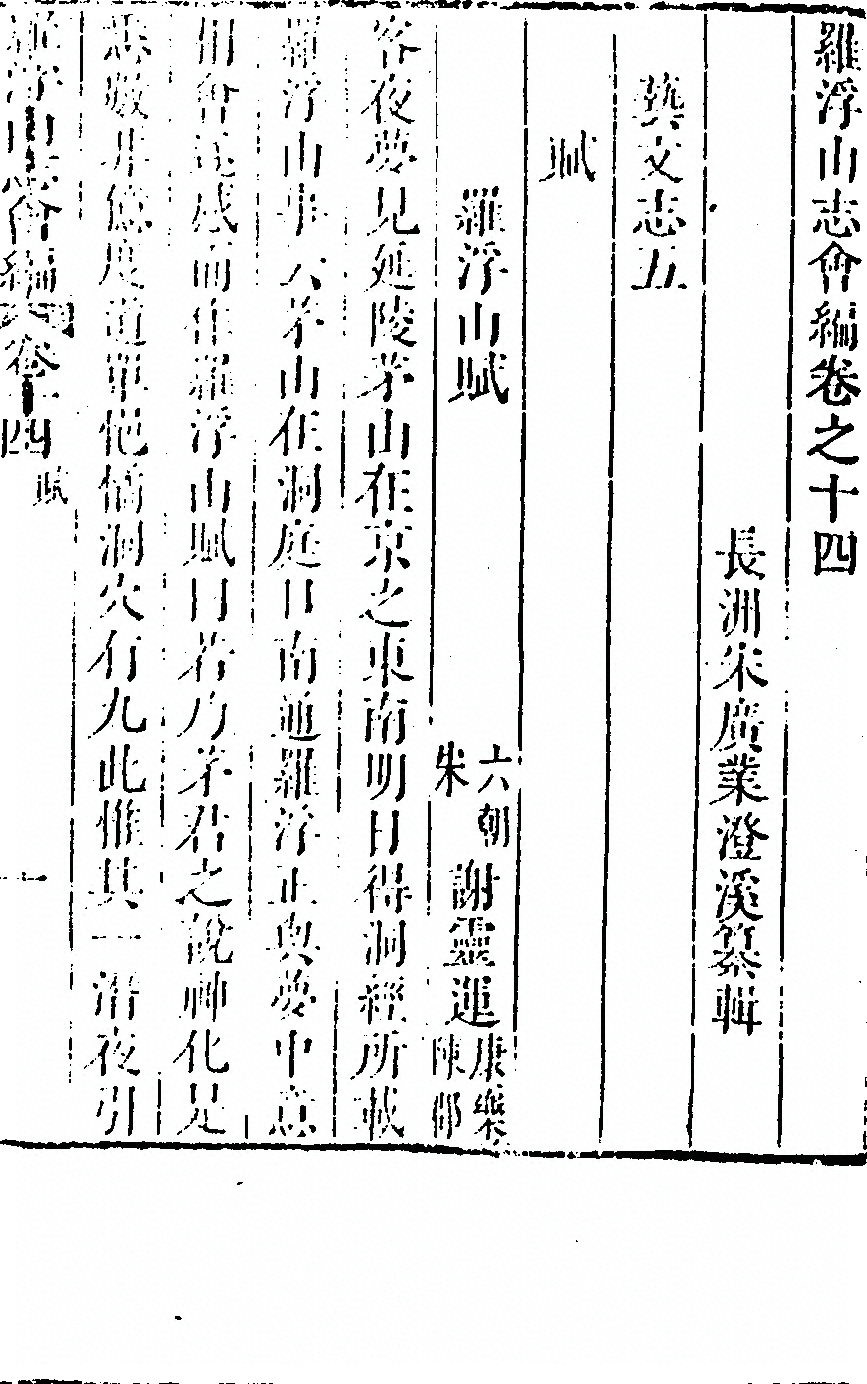 羅浮山志會編卷之十四
長洲宋廣業澄溪纂輯
藝文志五
賦
羅浮山賦
六朝宋 謝靈運 康樂 陳郡
客夜夢見延陵茅山在京之東南明旦得洞經所載
羅浮山事云茅山在洞庭口南通羅浮正與夢中意
相會遂感而作羅浮山賦曰若乃茅君之說神化是
悉數非億度道單悒慉洞穴有九此惟其一潛夜引
羅浮山志會編 卷十四 賦
一